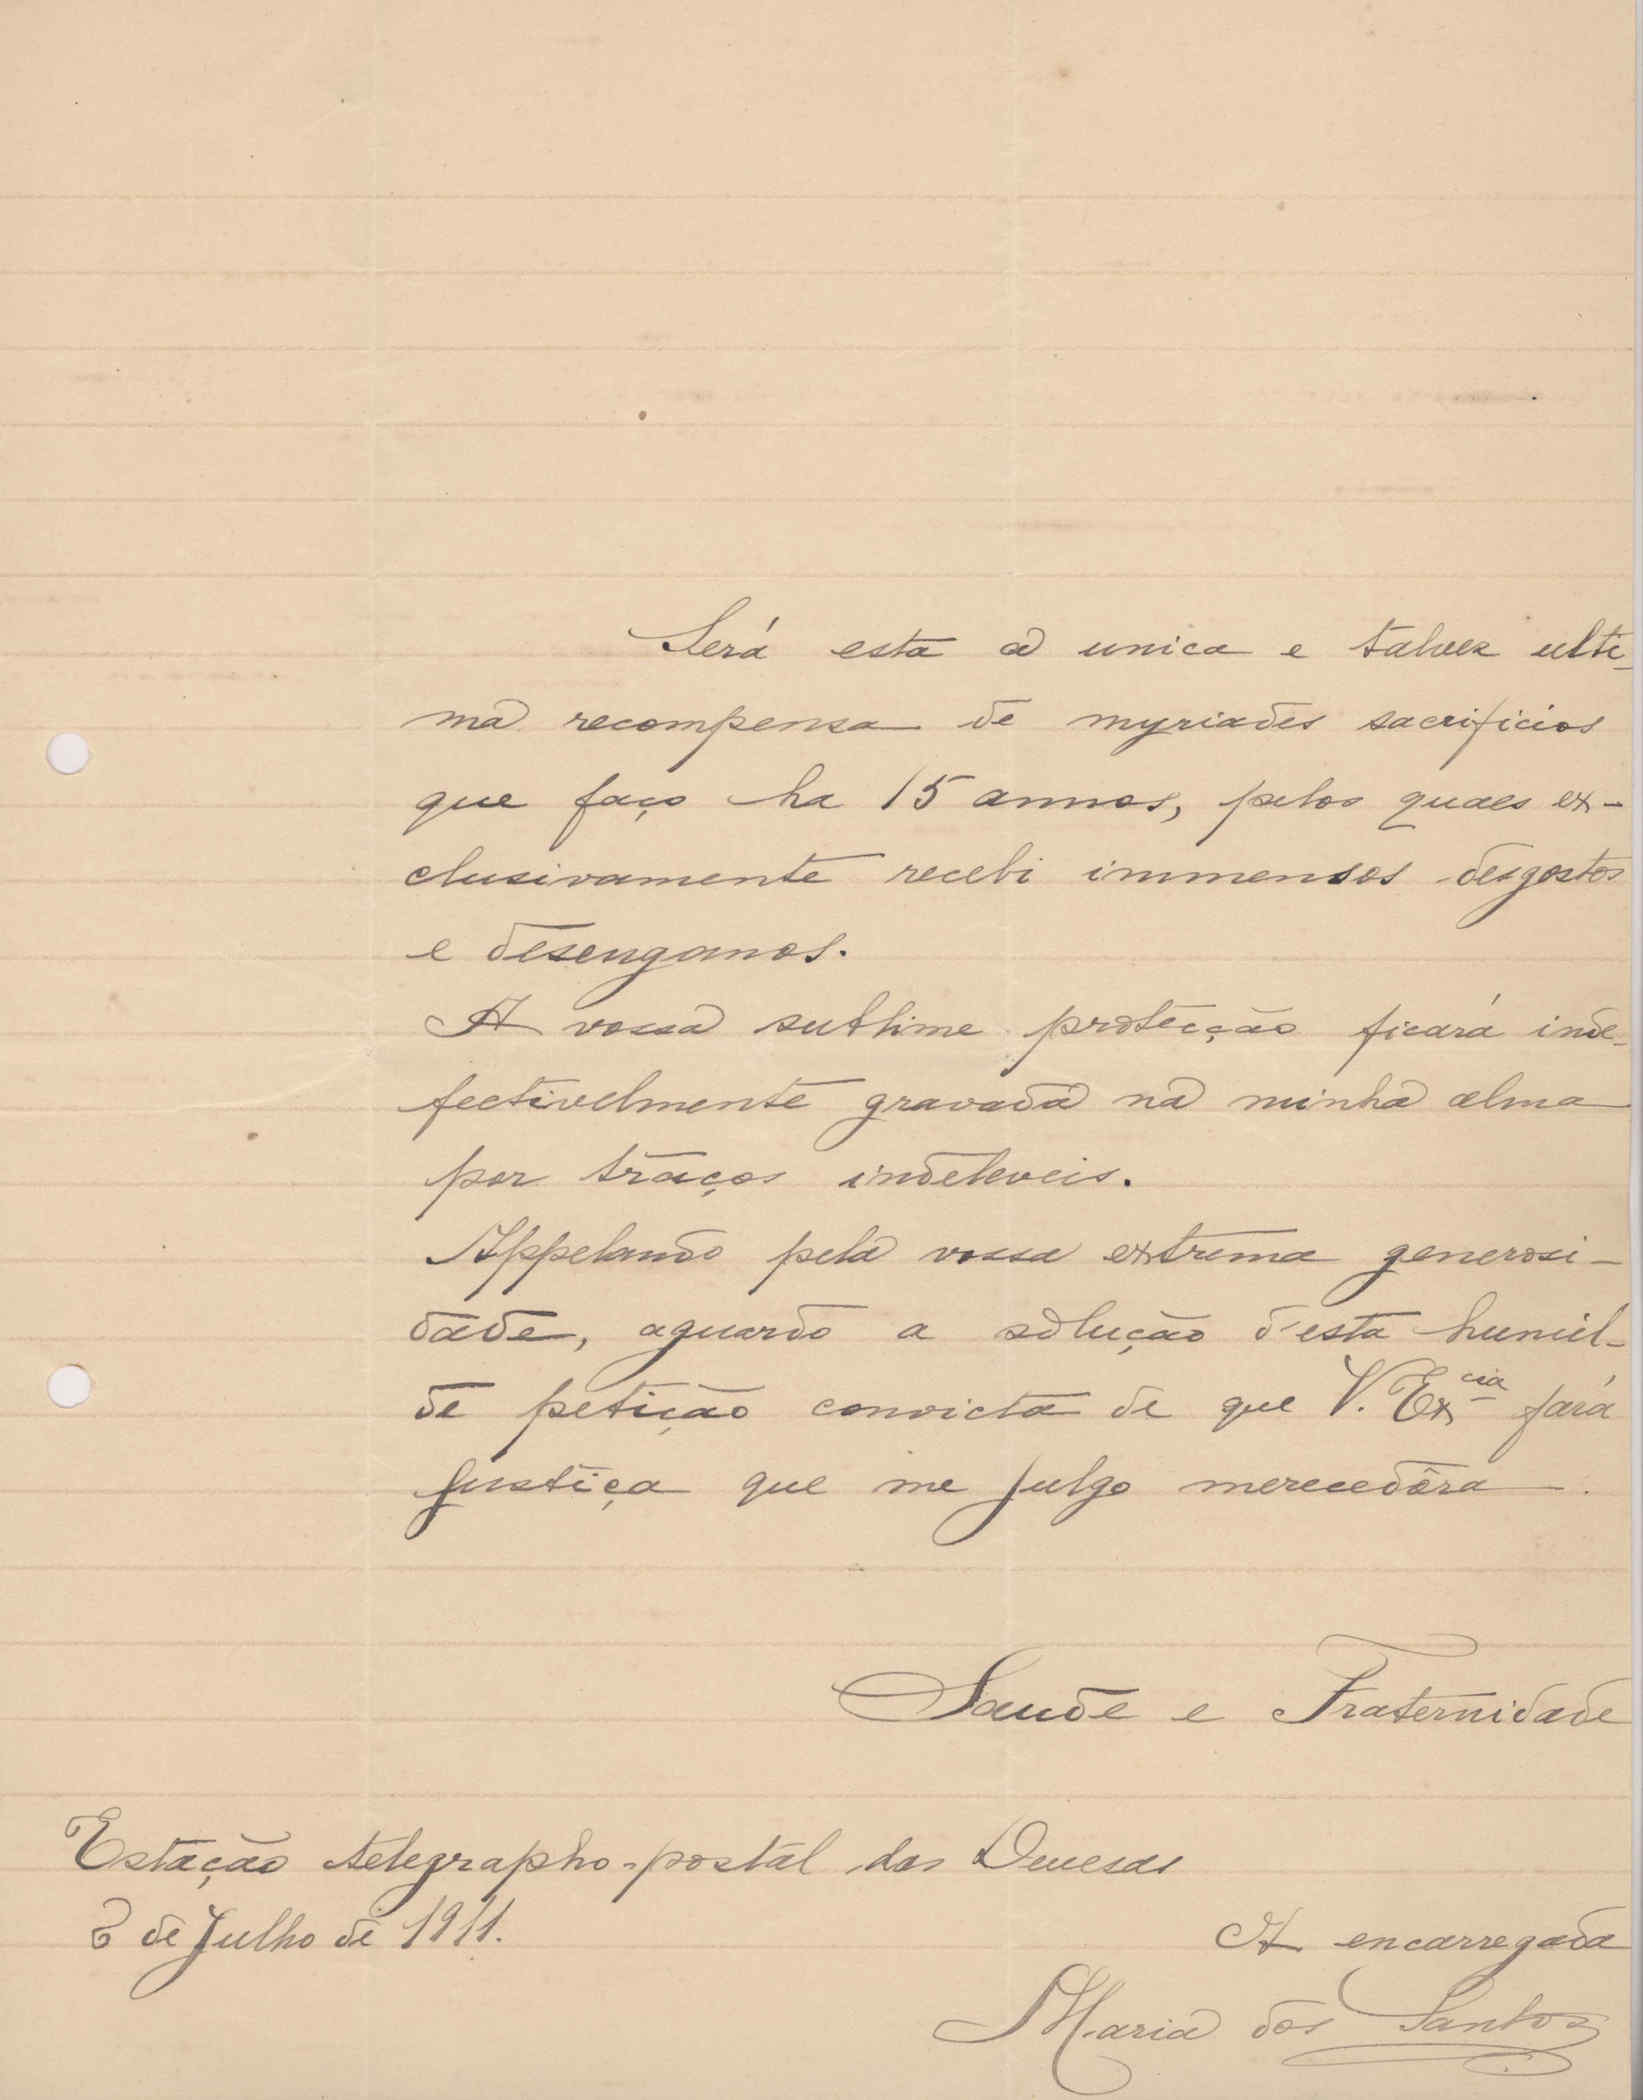 Será esta a unica e talvez ulti-
ma recompensa de myriades sacrificios
que faço ha 15 annos, pelos quaes ex-
clusivamente recebi immensos desgostos
e desenganos.
A vossa sublime protecção ficará inde-
fectivelmente gravada na minha alma
por traços indeleveis.
Appelando pela vossa extrema generosi-
dade, aguardo a solução d'esta humil-
de petição convicta de que V. Ex.cia fará
justiça que me julgo merecedôra.
Saude e Fraternidade
Estação telegrapho-postal das Devesas
de Julho de 1911.
A encarregada
Maria dos Santos